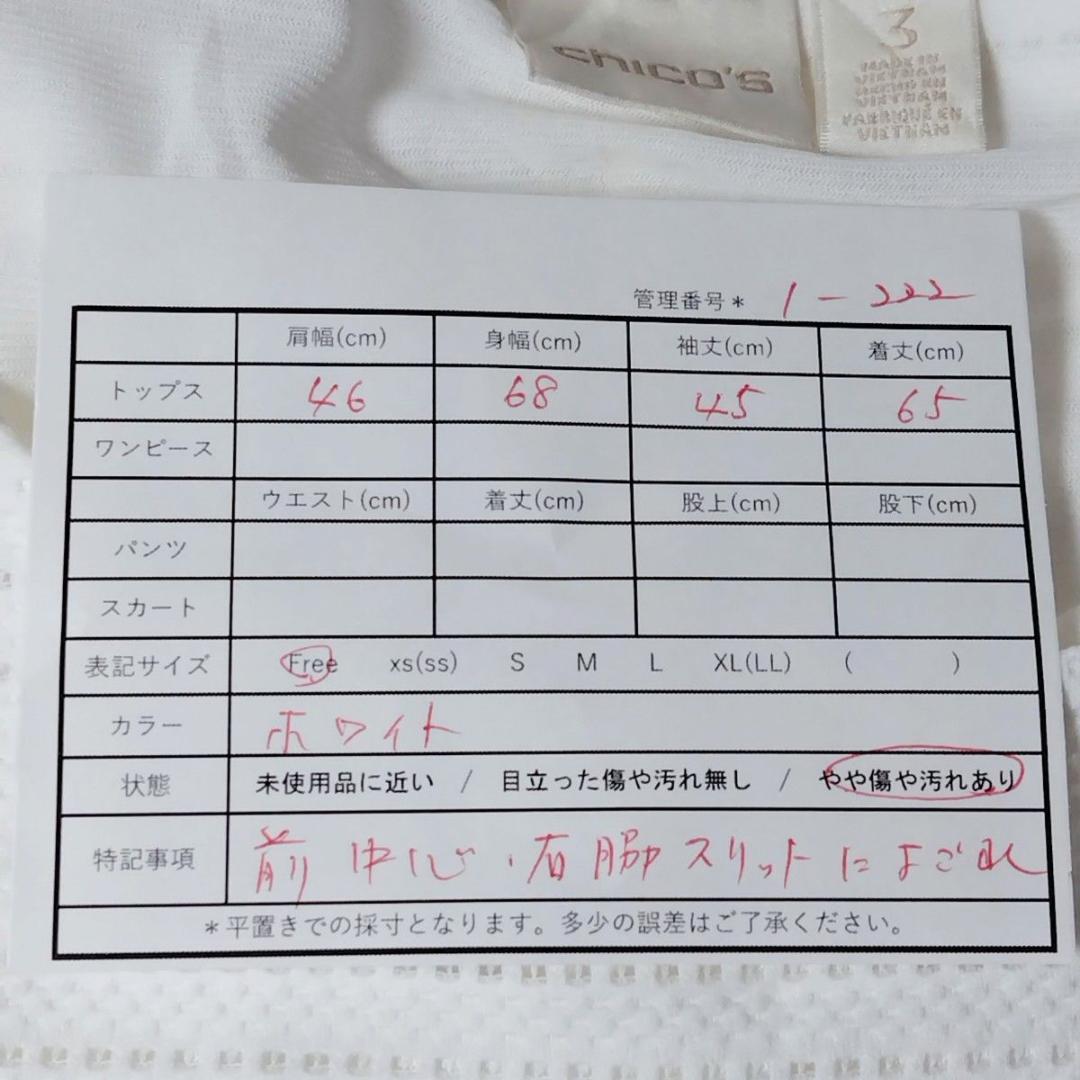 chico's
3
MADE IN
VIETNAM
HECHO EN
VIETNAM
FABRIQUÉ EN
VIETNAM
管理番号* 1-222
肩幅(cm) 身幅(cm) 袖丈(cm) 着丈(cm)
トップス 46 68 45 65
ワンピース
ウエスト(cm) 着丈(cm) 股上(cm) 股下(cm)
パンツ
スカート
表記サイズ Free xs(ss) S M L XL(LL) ( )
カラー ホワイト
状態 未使用品に近い / 目立った傷や汚れ無し / やや傷や汚れあり
特記事項 前中心・右脇スリットによごれ
*平置きでの採寸となります。多少の誤差はご了承ください。